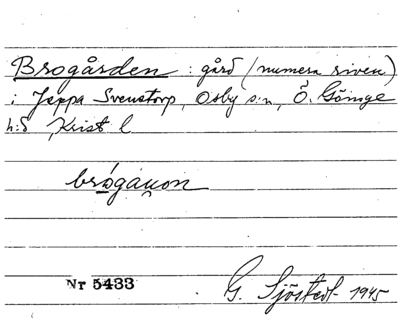 Brogården : gård (numera riven)
i Jeppa Svenstorp, Osby s:n, Ö. Göinge
h:d Krist l
brógau̯on
Nr 5433
G. Sjöstedt 1945